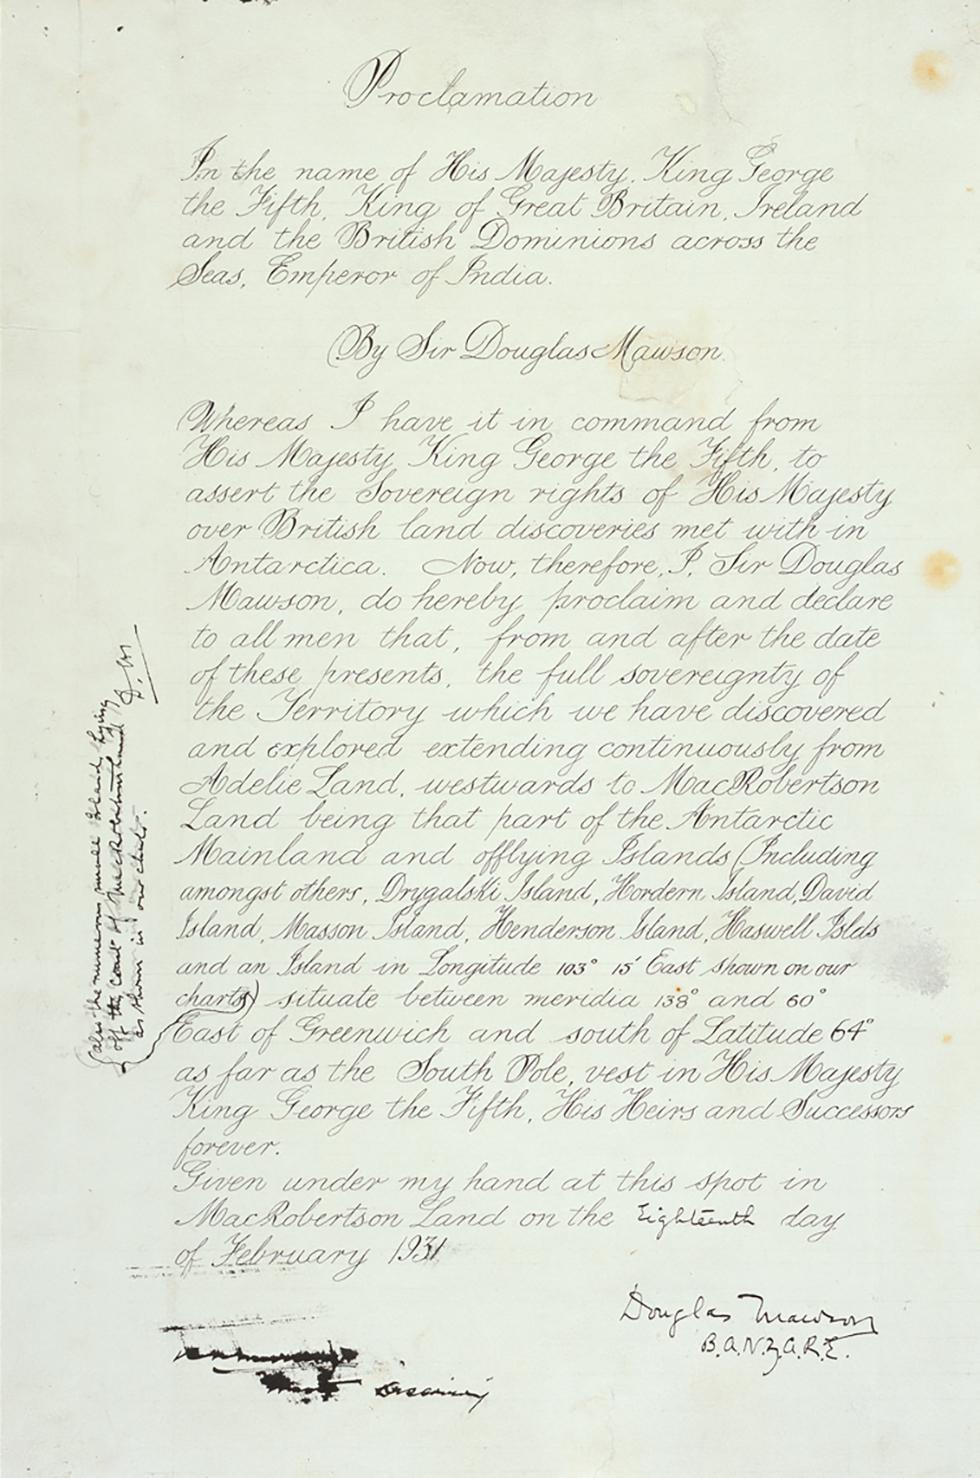 Proclamation
In the name of His Majesty, King George
the Fifth, King of Great Britain, Ireland
and the British Dominions across the
Seas, Emperor of India.
By Sir Douglas Mawson
Whereas I have it in command from
His Majesty, King George the Fifth, to
assert the Sovereign rights of His Majesty
over British land discoveries met with in
Antarctica. Now, therefore, I, Sir Douglas
Mawson, do hereby proclaim and declare
to all men that, from and after the date
of these presents, the full sovereignty of
the Territory which we have discovered
and explored extending continuously from
Adelie Land, westwards to MacRobertson
Land being that part of the Antarctic
Mainland and offlying Islands (Including
amongst others, Drygalski Island, Hordern Island, David
Island, Masson Island, Henderson Island, Haswell Islds
and an Island in Longitude 103° 15' East shown on our
charts) situate between meridia 138° and 60°
East of Greenwich and south of Latitude 64°
as far as the South Pole, vest in His Majesty
King George the Fifth, His Heirs and Successors
forever.
Given under my hand at this spot in
MacRobertson Land on the Eighteenth day
of February 1931
Douglas Mawson
B.A.N.Z.A.R.E.
(also the numerous small Island lying
off the coast of MacRobertson Land
as shown in our charts.
D. M